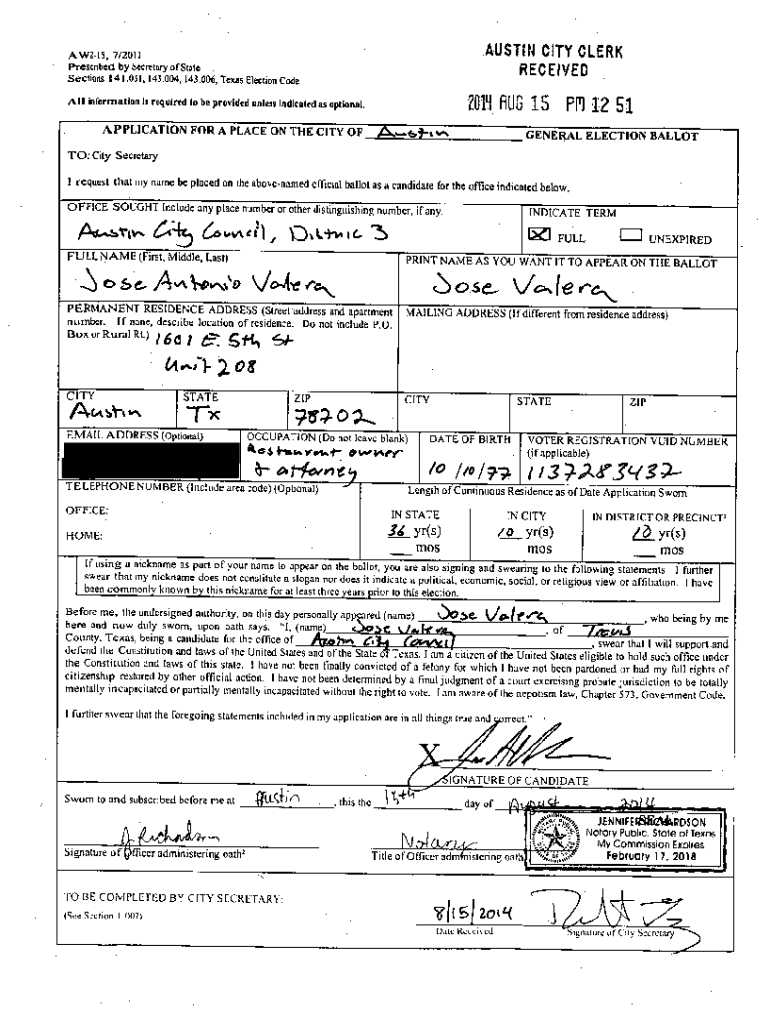 AW2-15, 7/2011
Prescribed by Secretary of State
Sections 141.031, 143.004, 143.006, Texas Election Code
AUSTIN CITY CLERK
RECEIVED
2014 AUG 15 PM 12 51
All information is required to be provided unless indicated as optional.
APPLICATION FOR A PLACE ON THE CITY OF Austin GENERAL ELECTION BALLOT
TO: City Secretary
I request that my name be placed on the above-named official ballot as a candidate for the office indicated below.
OFFICE SOUGHT Include any place number or other distinguishing number, if any.
Austin City Council, District 3
INDICATE TERM
FULL UNEXPIRED
FULL NAME (First, Middle, Last)
Jose Antonio Valera
PRINT NAME AS YOU WANT IT TO APPEAR ON THE BALLOT
Jose Valera
PERMANENT RESIDENCE ADDRESS (Street address and apartment
number. If none, describe location of residence. Do not include P.O.
Box or Rural Rt.) 1601 E. 5th St
Unit 208
MAILING ADDRESS (If different from residence address)
CITY STATE ZIP
Austin Tx 78702
CITY STATE ZIP
EMAIL ADDRESS (Optional)
OCCUPATION (Do not leave blank)
Restaurant owner
& attorney
DATE OF BIRTH
10/10/77
VOTER REGISTRATION VUID NUMBER
(if applicable)
1137283432
TELEPHONE NUMBER (Include area code) (Optional)
OFFICE:
HOME:
Length of Continuous Residence as of Date Application Sworn
IN STATE IN CITY IN DISTRICT OR PRECINCT¹
36 yr(s) 10 yr(s) 10 yr(s)
mos mos mos
If using a nickname as part of your name to appear on the ballot, you are also signing and swearing to the following statements. I further
swear that my nickname does not constitute a slogan nor does it indicate a political, economic, social, or religious view or affiliation. I have
been commonly known by this nickname for at least three years prior to this election.
Before me, the undersigned authority, on this day personally appeared (name) Jose Valera, who being by me
here and now duly sworn, upon oath says. "I, (name) Jose Valera, of Travis
County, Texas, being a candidate for the office of Austin City Council, swear that I will support and
defend the Constitution and laws of the United States and of the State of Texas. I am a citizen of the United States eligible to hold such office under
the Constitution and laws of this state. I have not been finally convicted of a felony for which I have not been pardoned or had my full rights of
citizenship restored by other official action. I have not been determined by a final judgment of a court exercising probate jurisdiction to be totally
mentally incapacitated or partially mentally incapacitated without the right to vote. I am aware of the nepotism law, Chapter 573, Government Code.
I further swear that the foregoing statements included in my application are in all things true and correct."
X
SIGNATURE OF CANDIDATE
Sworn to and subscribed before me at Austin, this the 15th day of August 2014
J Richardson
Signature of Officer administering oath²
Notary
Title of Officer administering oath
JENNIFER RICHARDSON
Notary Public, State of Texas
My Commission Expires
February 17, 2018
TO BE COMPLETED BY CITY SECRETARY:
(See Section 1.007)
8/15/2014
Date Received
Signature of City Secretary